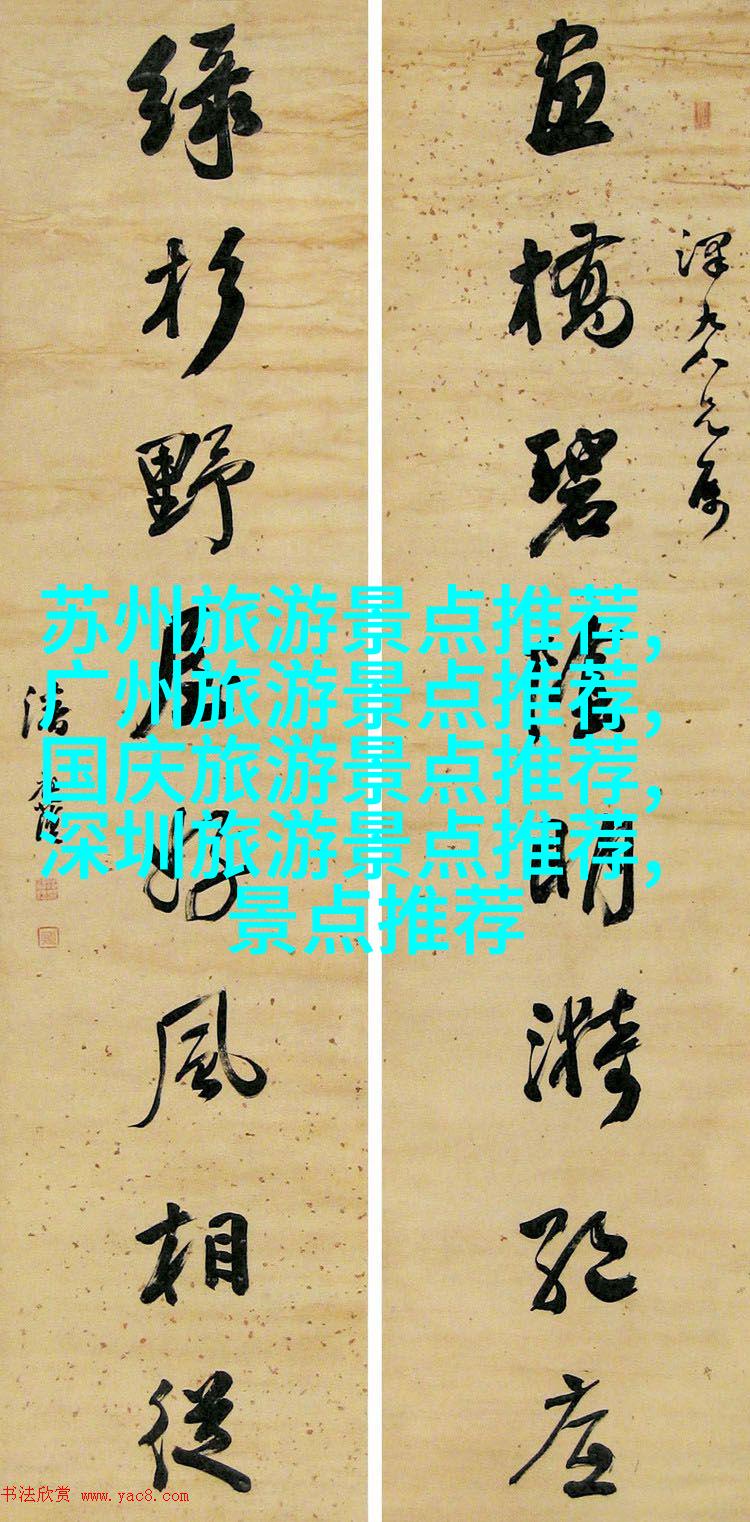 畫橋碧陰明漪絕底
綠杉野屋好風相從
潘祖蔭
苏州旅游景点推荐,
广州旅游景点推荐,
国庆旅游景点推荐,
深圳旅游景点推荐,
景点推荐
书法欣赏 www.yac8.com